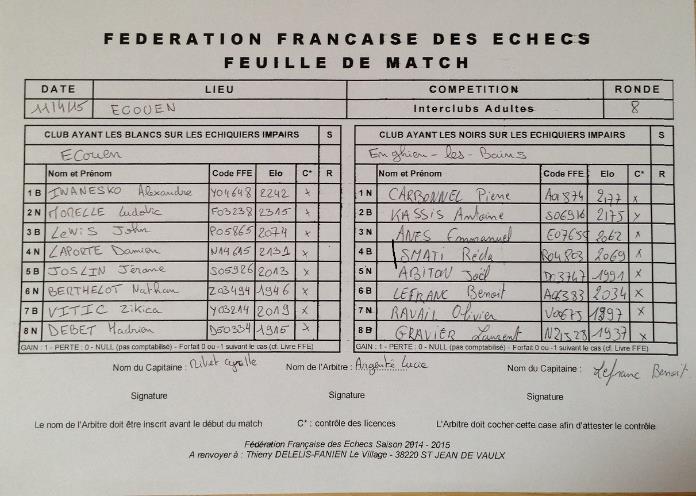 FEDERATION FRANCAISE DES ECHECS
FEUILLE DE MATCH
DATE LIEU COMPETITION RONDE
11/4/15 ECOUEN Interclubs Adultes 8
CLUB AYANT LES BLANCS SUR LES ECHIQUIERS IMPAIRS S CLUB AYANT LES NOIRS SUR LES ECHIQUIERS IMPAIRS S
Ecouen Enghien-les-Bains
Nom et Prénom Code FFE Elo C* R Nom et Prénom Code FFE Elo C* R
1 B IWANESKO Alexandre Y04648 2242 x 1 N CARBONNEL Pierre A01874 2177 x
2 N MORELLE Ludovic F03238 2315 x 2 B KASSIS Antoine S06916 2175 x
3 B LEWIS John P05865 2074 x 3 N ANES Emmanuel E07655 2062 x
4 N LAPORTE Damien N14615 2131 x 4 B SMATI Réda R04803 2069 x
5 B JOSLIN Jérome S05926 2013 x 5 N ABITON Joël 1991 x
6 N BERTHELOT Nathan Z03494 1946 x 6 B LEFRANC Benoit 2034 x
7 B VITIC Zikica Y03214 2019 x 7 N RAVAIL Olivier V00673 1897 x
8 N DEBET Hadrien D50334 1915 x 8 B GRAVIER Laurent N21528 1937 x
GAIN : 1 - PERTE : 0 - NULL (pas comptabilisé) - Forfait 0 ou -1 suivant le cas (cf. Livre FFE) GAIN : 1 - PERTE : 0 - NULL (pas comptabilisé) - Forfait 0 ou -1 suivant le cas (cf. Livre FFE)
Nom du Capitaine : Nivet Nom de l'Arbitre : Argenté Lucie Nom du Capitaine : Lefranc Benoit
Signature Signature Signature
Le nom de l'Arbitre doit être inscrit avant le début du match C* : contrôle des licences L'Arbitre doit cocher cette case afin d'attester le contrôle
Fédération Française des Echecs Saison 2014 - 2015
A renvoyer à : Thierry DELELIS-FANIEN Le Village - 38220 ST JEAN DE VAULX